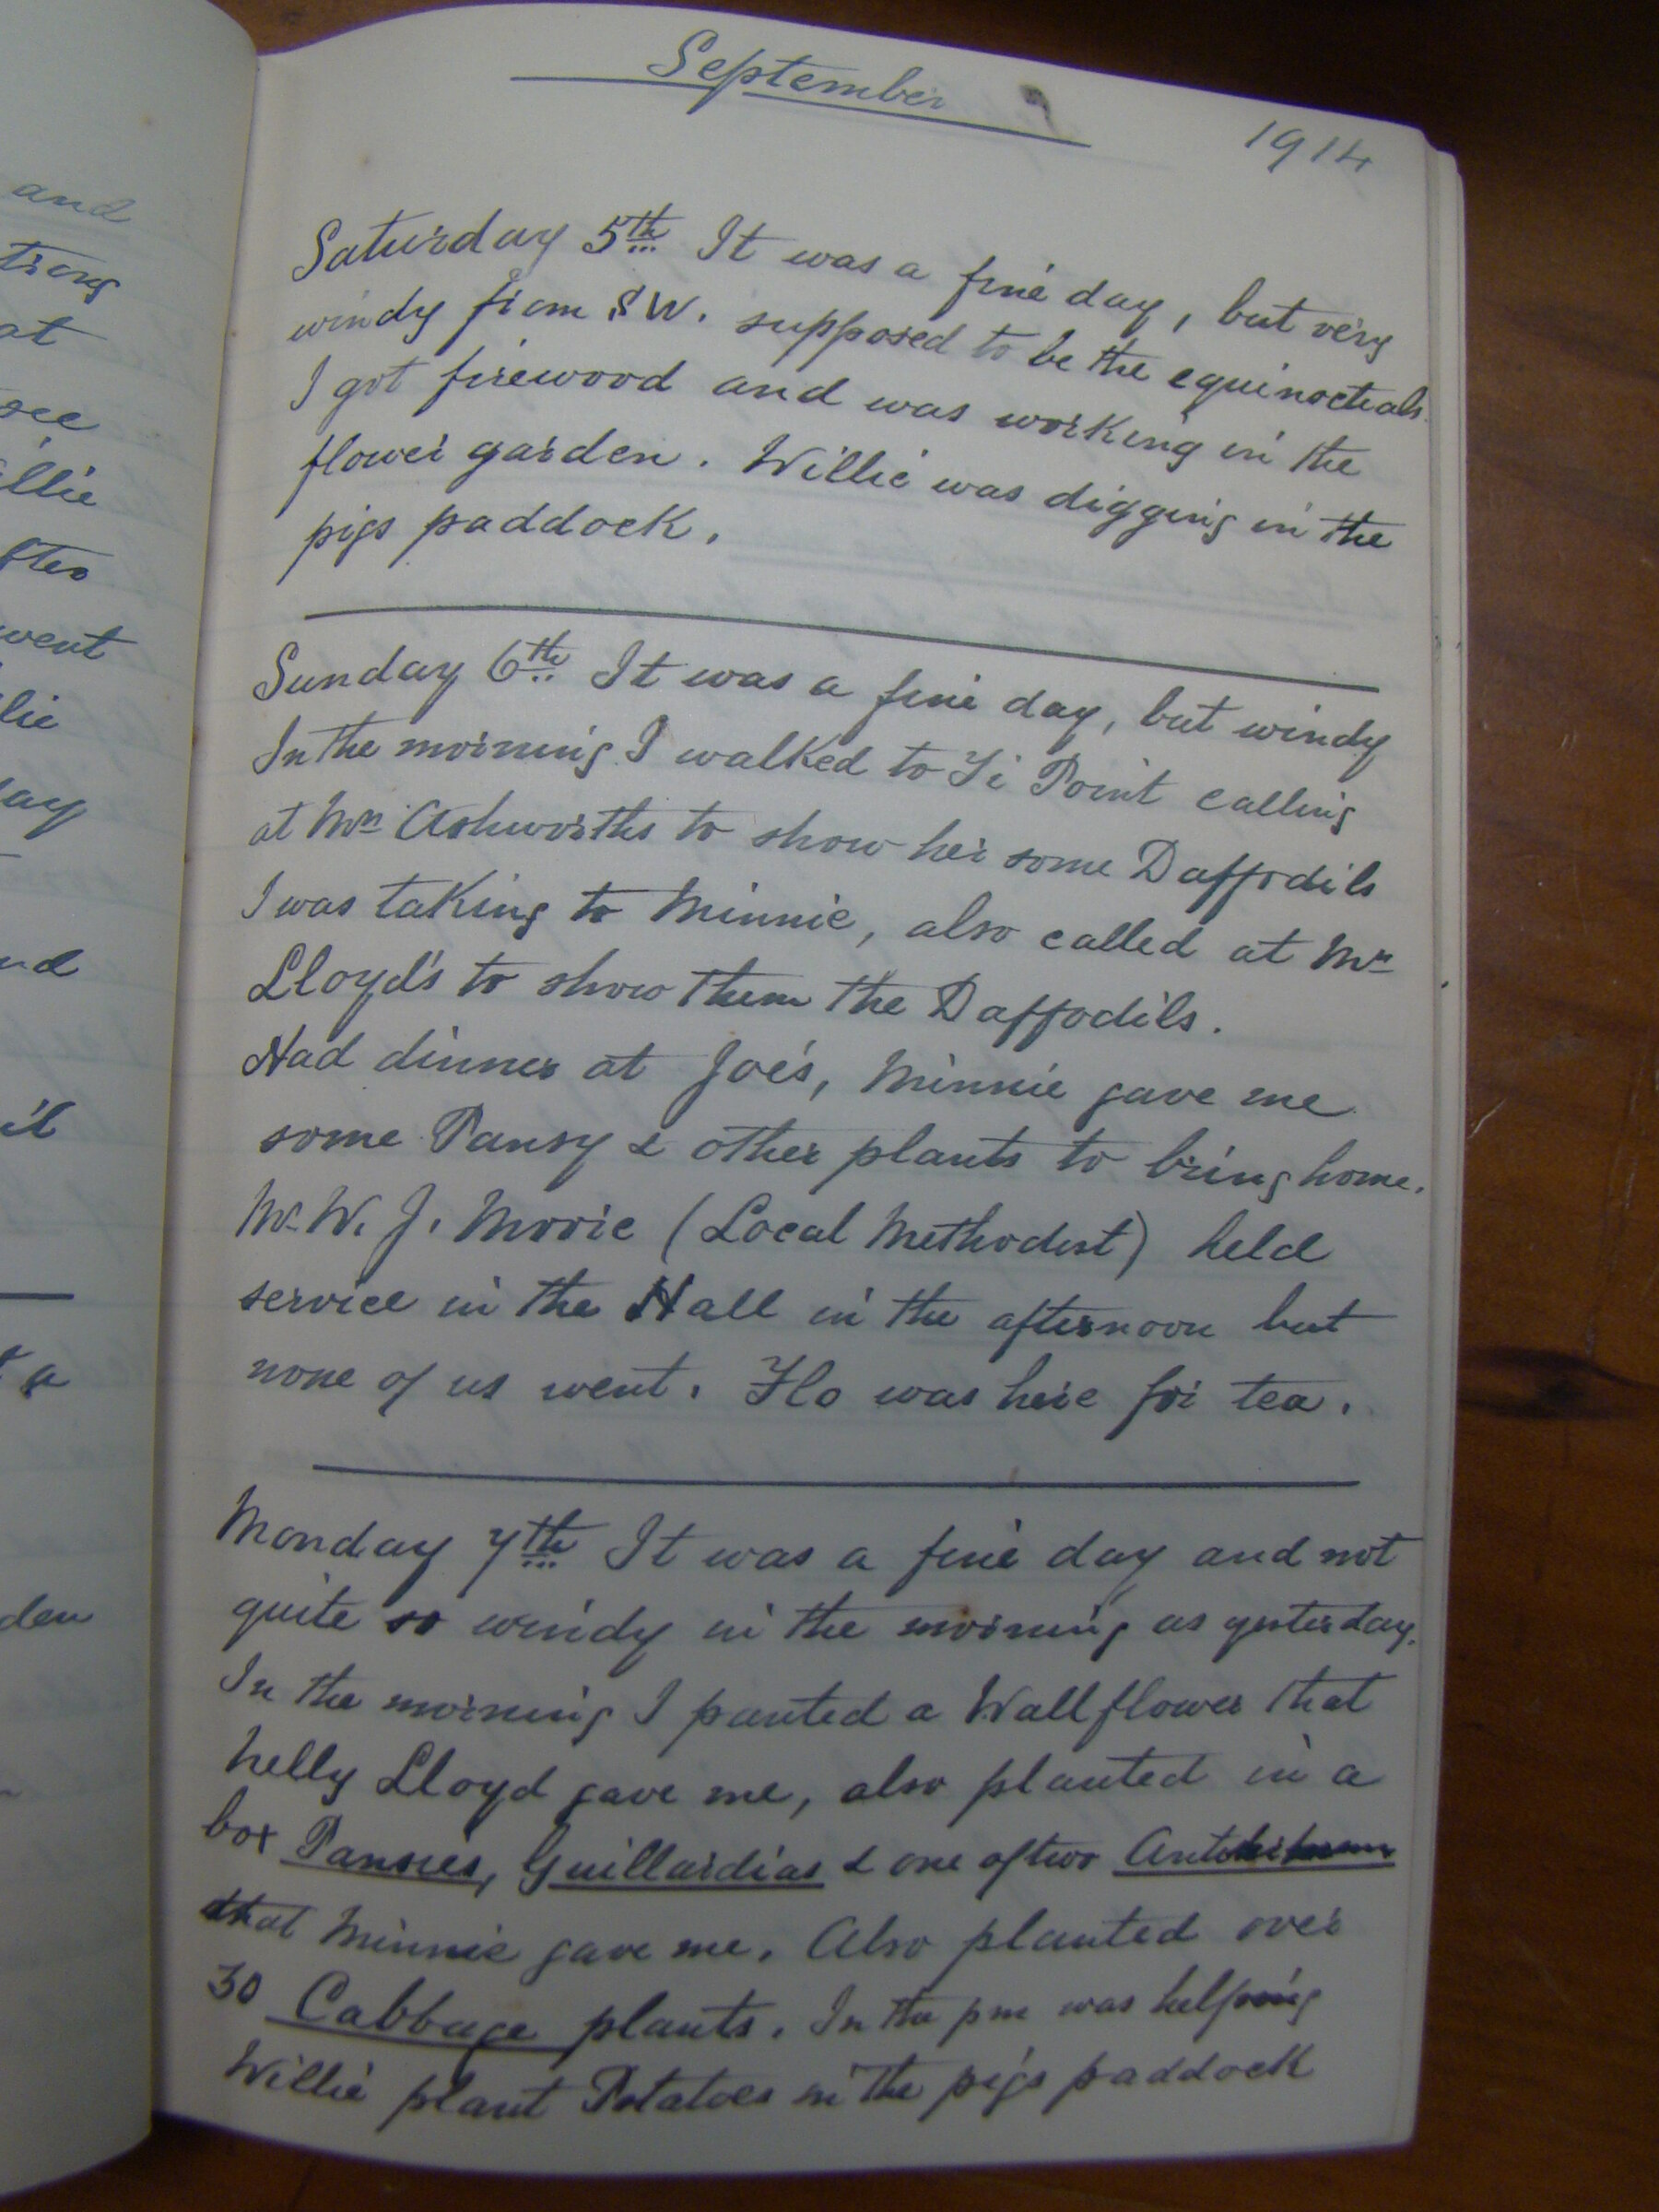 September
1914
Saturday 5th It was a fine day, but very
windy from SW. supposed to be the equinoctials.
I got firewood and was working in the
flower garden. Willie was digging in the
pigs paddock.
Sunday 6th It was a fine day, but windy
In the morning I walked to Ti Point calling
at Mrs Ashworths to show her some Daffodils
I was taking to Minnie, also called at Mrs
Lloyd's to show them the Daffodils.
Had dinner at Joe's, Minnie gave me
some Pansy & other plants to bring home.
Mr W. J. Morrie (Local Methodist) held
service in the Hall in the afternoon but
none of us went. Flo was here for tea.
Monday 7th It was a fine day and not
quite so windy in the morning as yesterday.
In the morning I panted a Wallflower that
Nelly Lloyd gave me, also planted in a
box Pansies, Guillardias & one of two
that Minnie gave me. Also planted over
30 Cabbage plants. In the pm was helping
Willie plant Potatoes in the pigs paddock
and
at
see
llie
went
lie
lay
nd
il
a
den